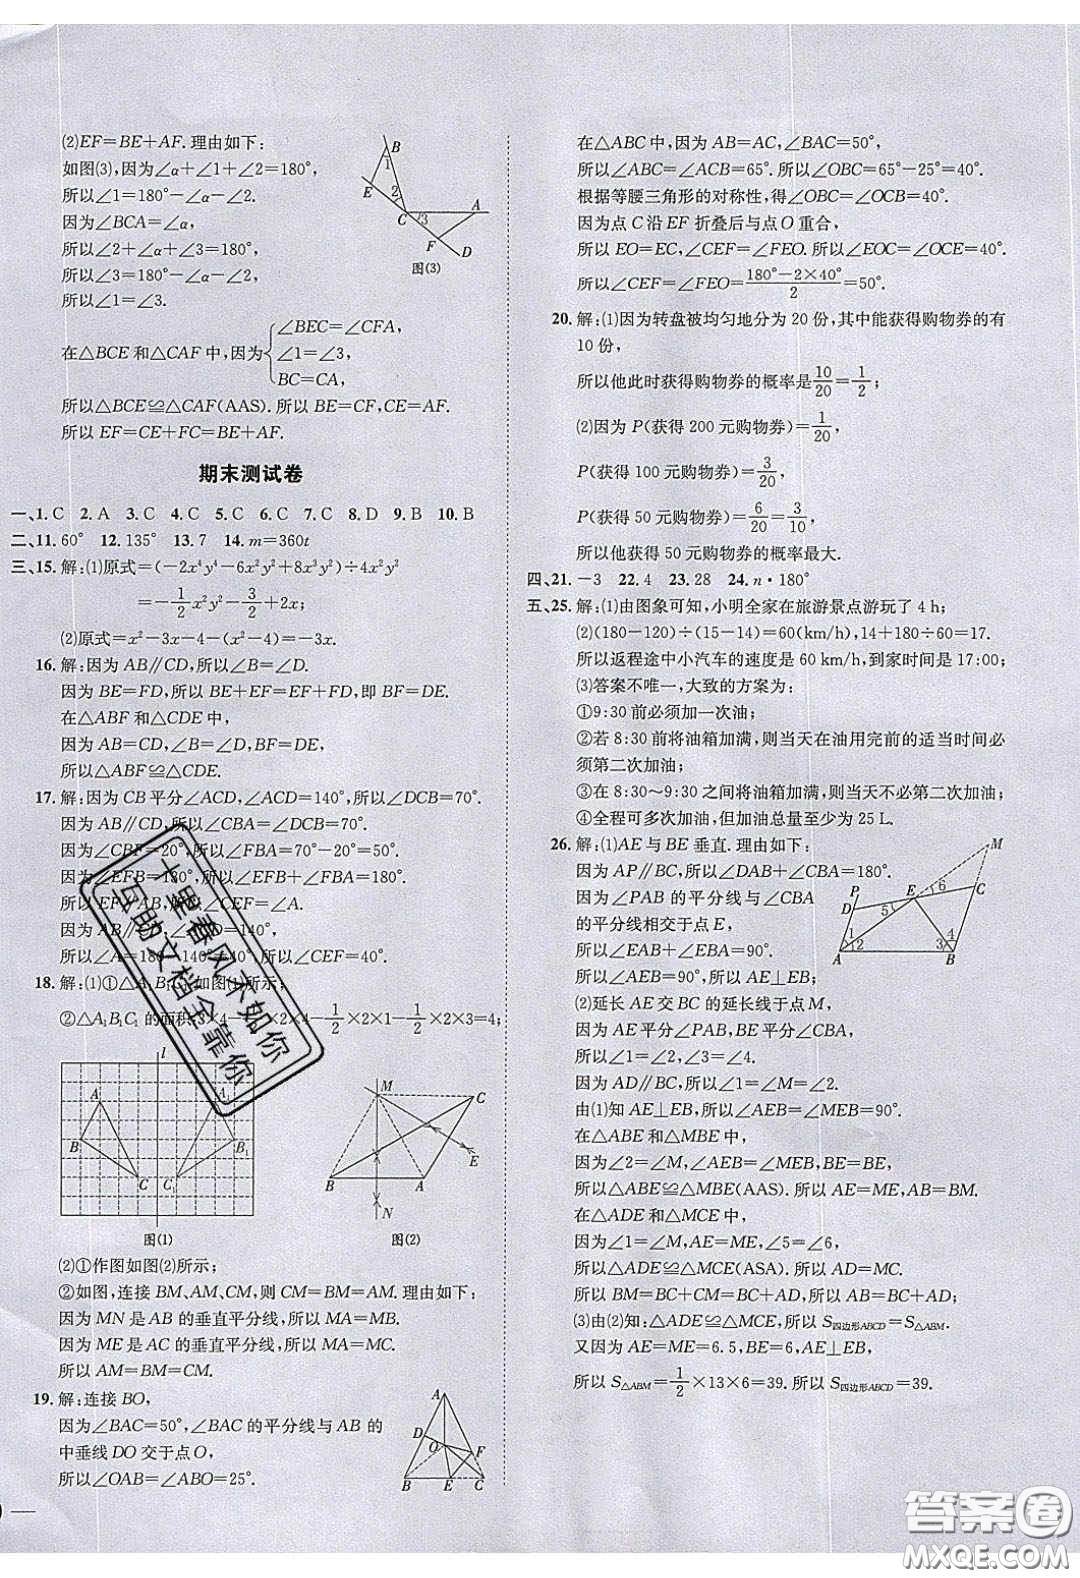 (2)EF=BE+AF.理由如下:
如图(3),因为∠α+∠1+∠2=180°,
所以∠1=180°-∠α-∠2.
因为∠BCA=∠α,
所以∠2+∠α+∠3=180°,
所以∠3=180°-∠α-∠2.
所以∠1=∠3.
B
1
E
2
C
3
A
F
D
图(3)
∠BEC=∠CFA,
在△BCE和△CAF中,因为{∠1=∠3,
BC=CA,
所以△BCE≌△CAF(AAS).所以BE=CF,CE=AF.
所以EF=CE+FC=BE+AF.
期末测试卷
一、1.C 2.A 3.C 4.C 5.C 6.C 7.C 8.D 9.B 10.B
二、11.60° 12.135° 13.7 14.m=360t
三、15.解:(1)原式=(-2x⁴y⁴-6x²y²+8x³y²)÷4x²y²
=-1/2x²y²-3/2+2x;
(2)原式=x²-3x-4-(x²-4)=-3x.
16.解:因为AB∥CD,所以∠B=∠D.
因为BE=FD,所以BE+EF=EF+FD,即BF=DE.
在△ABF和△CDE中,
因为AB=CD,∠B=∠D,BF=DE,
所以△ABF≌△CDE.
17.解:因为CB平分∠ACD,∠ACD=140°,所以∠DCB=70°.
因为AB∥CD,所以∠CBA=∠DCB=70°.
因为∠CBF=20°,所以∠FBA=70°-20°=50°.
因为∠EFB=130°,所以∠EFB+∠FBA=180°.
所以EF∥AB,所以∠CEF=∠A.
因为AB∥CD,∠ACD=140°,
所以∠A=180°-140°=40°,所以∠CEF=40°.
18.解:(1)①△A₁B₁C₁如图(1)所示;
②△A₁B₁C₁的面积=3×4-1/2×2×4-1/2×2×1-1/2×2×3=4;
l
A
A₁
B
B₁
C
C₁
图(1)
M
C
E
B
A
N
图(2)
(2)①作图如图(2)所示;
②如图,连接BM、AM、CM,则CM=BM=AM.理由如下:
因为MN是AB的垂直平分线,所以MA=MB.
因为ME是AC的垂直平分线,所以MA=MC.
所以AM=BM=CM.
19.解:连接BO,
因为∠BAC=50°,∠BAC的平分线与AB的
中垂线DO交于点O,
所以∠OAB=∠ABO=25°.
A
D
O
F
B
E
C
在△ABC中,因为AB=AC,∠BAC=50°,
所以∠ABC=∠ACB=65°.所以∠OBC=65°-25°=40°.
根据等腰三角形的对称性,得∠OBC=∠OCB=40°.
因为点C沿EF折叠后与点O重合,
所以EO=EC,∠CEF=∠FEO.所以∠EOC=∠OCE=40°.
所以∠CEF=∠FEO=(180°-2×40°)/2=50°.
20.解:(1)因为转盘被均匀地分为20份,其中能获得购物券的有
10份,
所以他此时获得购物券的概率是10/20=1/2;
(2)因为P(获得200元购物券)=1/20,
P(获得100元购物券)=3/20,
P(获得50元购物券)=6/20=3/10,
所以他获得50元购物券的概率最大.
四、21.-3 22.4 23.28 24.n·180°
五、25.解:(1)由图象可知,小明全家在旅游景点游玩了4 h;
(2)(180-120)÷(15-14)=60(km/h),14+180÷60=17.
所以返程途中小汽车的速度是60 km/h,到家时是17:00;
(3)答案不唯一,大致的方案为:
①9:30前必须加一次油;
②若8:30前将油箱加满,则当天在油用完前的适当时间必
须第二次加油;
③在8:30~9:30之间将油箱加满,则当天不必第二次加油;
④全程可多次加油,但加油总量至少为25 L.
26.解:(1)AE与BE垂直.理由如下:
因为AP∥BC,所以∠DAB+∠CBA=180°.
因为∠PAB的平分线与∠CBA
的平分线相交于点E,
所以∠EAB+∠EBA=90°.
所以∠AEB=90°,所以AE⊥EB;
(2)延长AE交BC的延长线于点M,
因为AE平分∠PAB,BE平分∠CBA,
所以∠1=∠2,∠3=∠4.
因为AD∥BC,所以∠1=∠M,∠2=∠M.
由(1)知AE⊥EB,所以∠AEB=∠MEB=90°.
在△ABE和△MBE中,
因为∠2=∠M,∠AEB=∠MEB,BE=BE,
所以△ABE≌△MBE(AAS).所以AE=ME,AB=BM.
在△ADE和△MCE中,
因为∠1=∠M,AE=ME,∠5=∠6,
所以△ADE≌△MCE(ASA).所以AD=MC.
所以BM=BC+CM=BC+AD,所以AB=BC+AD;
(3)由(2)知:△ADE≌△MCE,所以S四边形ABCD=S△ABM.
又因为AE=ME=6.5,BE=6,AE⊥EB,
所以S△ABM=1/2×13×6=39.所以S四边形ABCD=39.
M
P
E
6
C
D
5
1
2
4
3
A
B
十里春风不如你
互助文档全靠你
答案卷
MXQE.COM